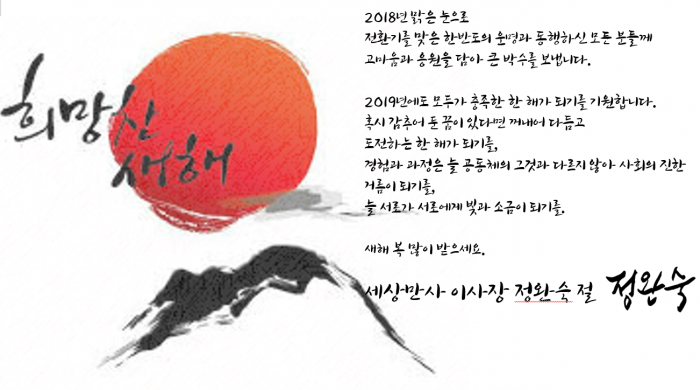 희망찬
새해
2018년 맑은 눈으로
전환기를 맞은 한반도의 운명과 동행하신 모든 분들께
고마움과 응원을 담아 큰 박수를 보냅니다.
2019년에도 모두가 충족한 한 해가 되기를 기원합니다.
혹시 감추어 둔 꿈이 있다면 꺼내어 다듬고
도전하는 한 해가 되기를,
경험과 과정은 늘 공동체의 그것과 다르지 않아 사회의 진한
거름이 되기를,
늘 서로가 서로에게 빛과 소금이 되기를.
새해 복 많이 받으세요.
세상만사 이사장 정완숙 절 정완숙